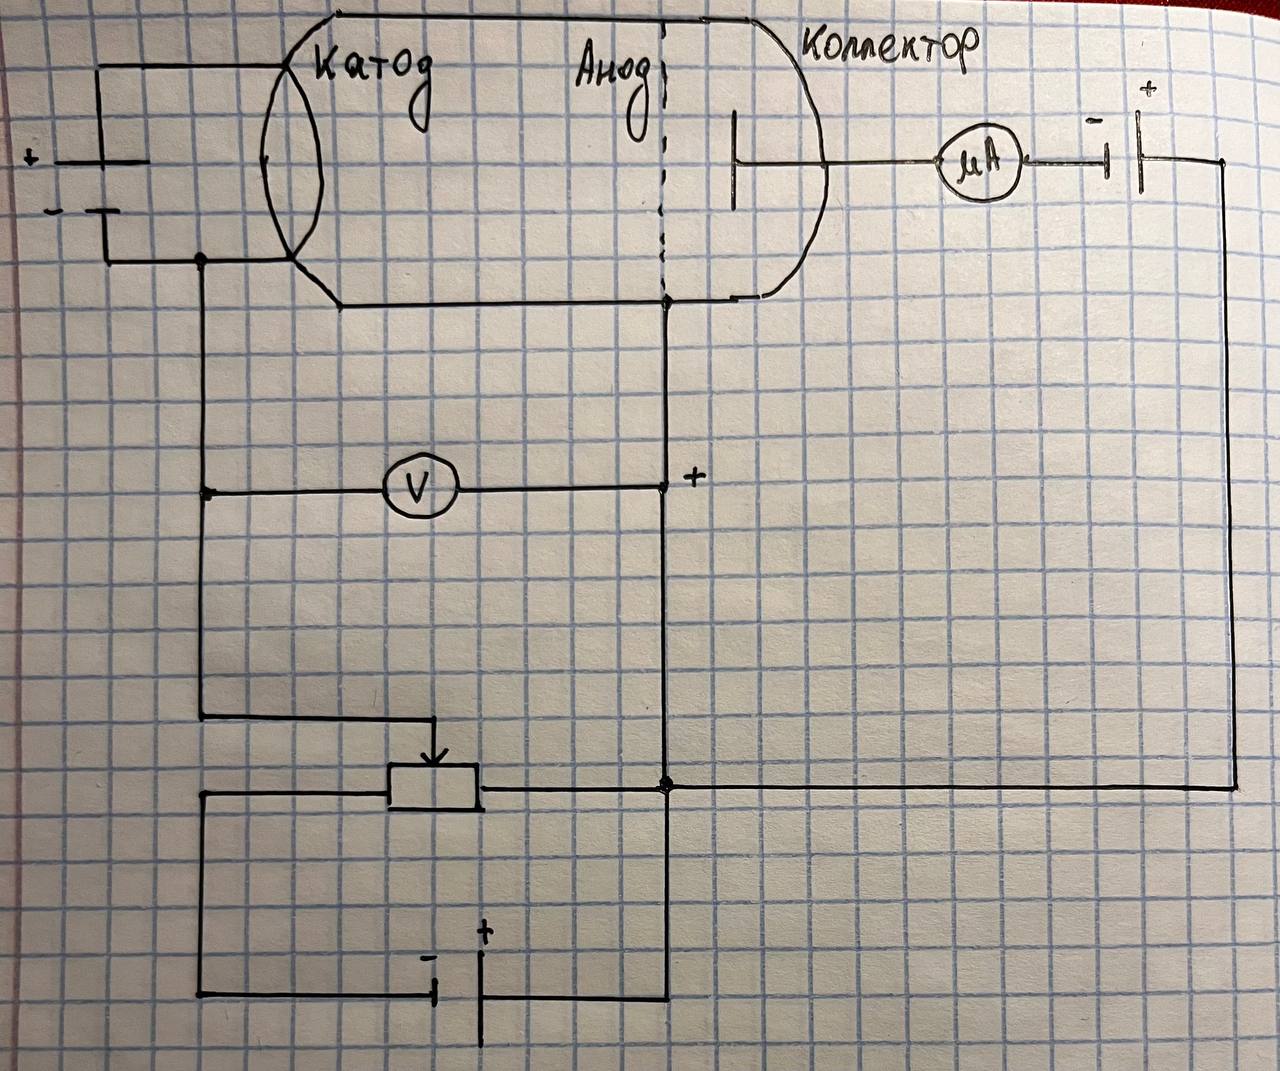 Катод
Анод
Коллектор
+
-
μА
-
+
V
+
-
+